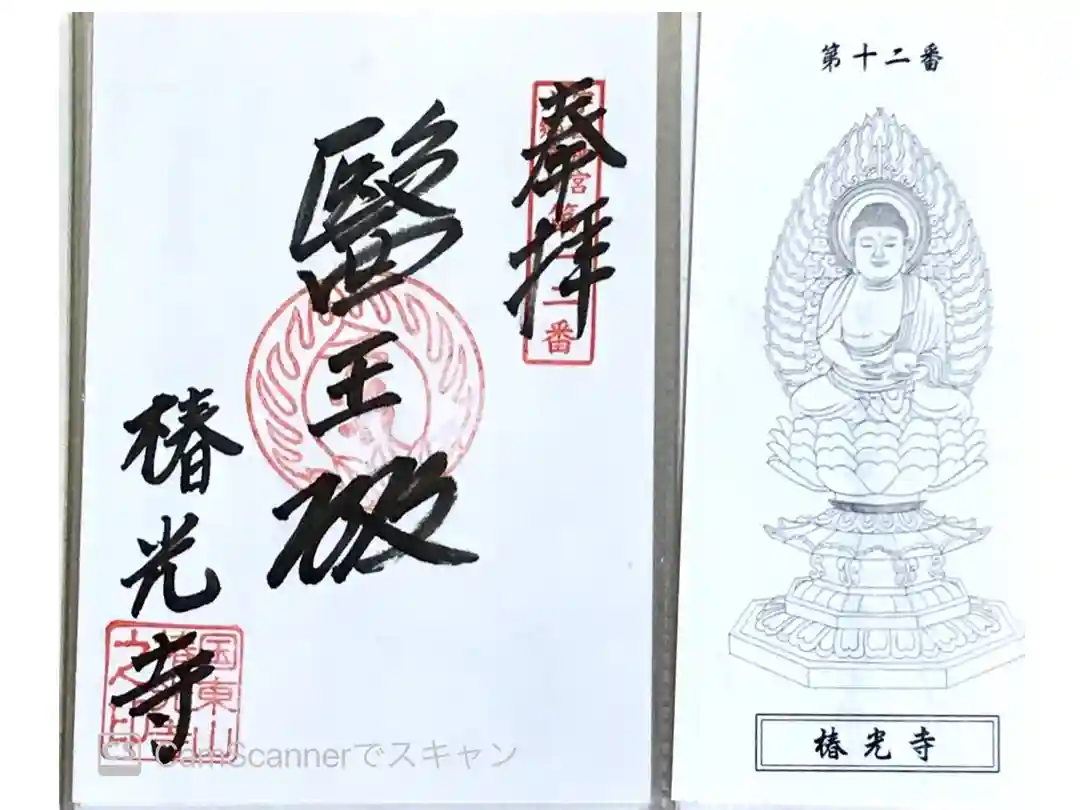 奉拝
番
醫王殿
椿光寺
国東山
第十二番
椿光寺
CamScannerでスキャン